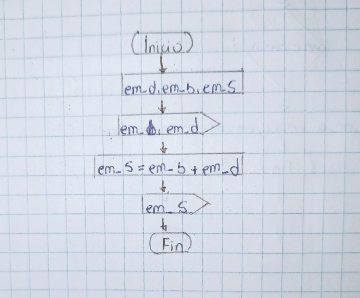 (Inicio)
em_d, em_b, em_S
em_b, em_d
em_S = em_b + em_d
em_S
Fin